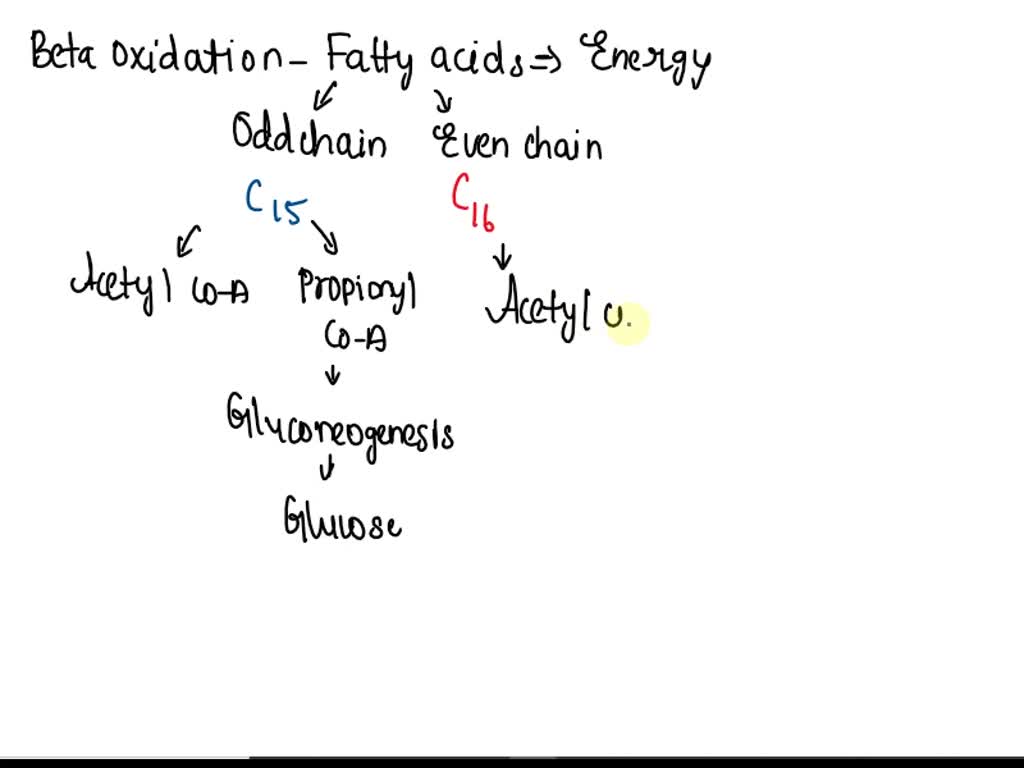 Beta oxidation - Fatty acids ⇒ Energy
Odd chain Even chain
C15 C16
Acetyl CO-A Propionyl CO-A Acetyl
Gluconeogenesis
Glucose